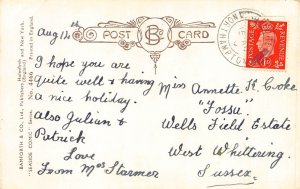 Aug 12th
POST CARD
I hope you are
quite well & having
a nice holiday.
also Julian &
Patrick
Love
from Mrs Starmer
Miss Annette H. Cooke
"Fossu"
Wells Field Estate
West Whittering
Sussex
BAMFORTH & CO., Ltd., Publishers
Holmfirth (England) and New York.
"SEASIDE COMIC" Series No. 4446
Printed in England.
REVENUE